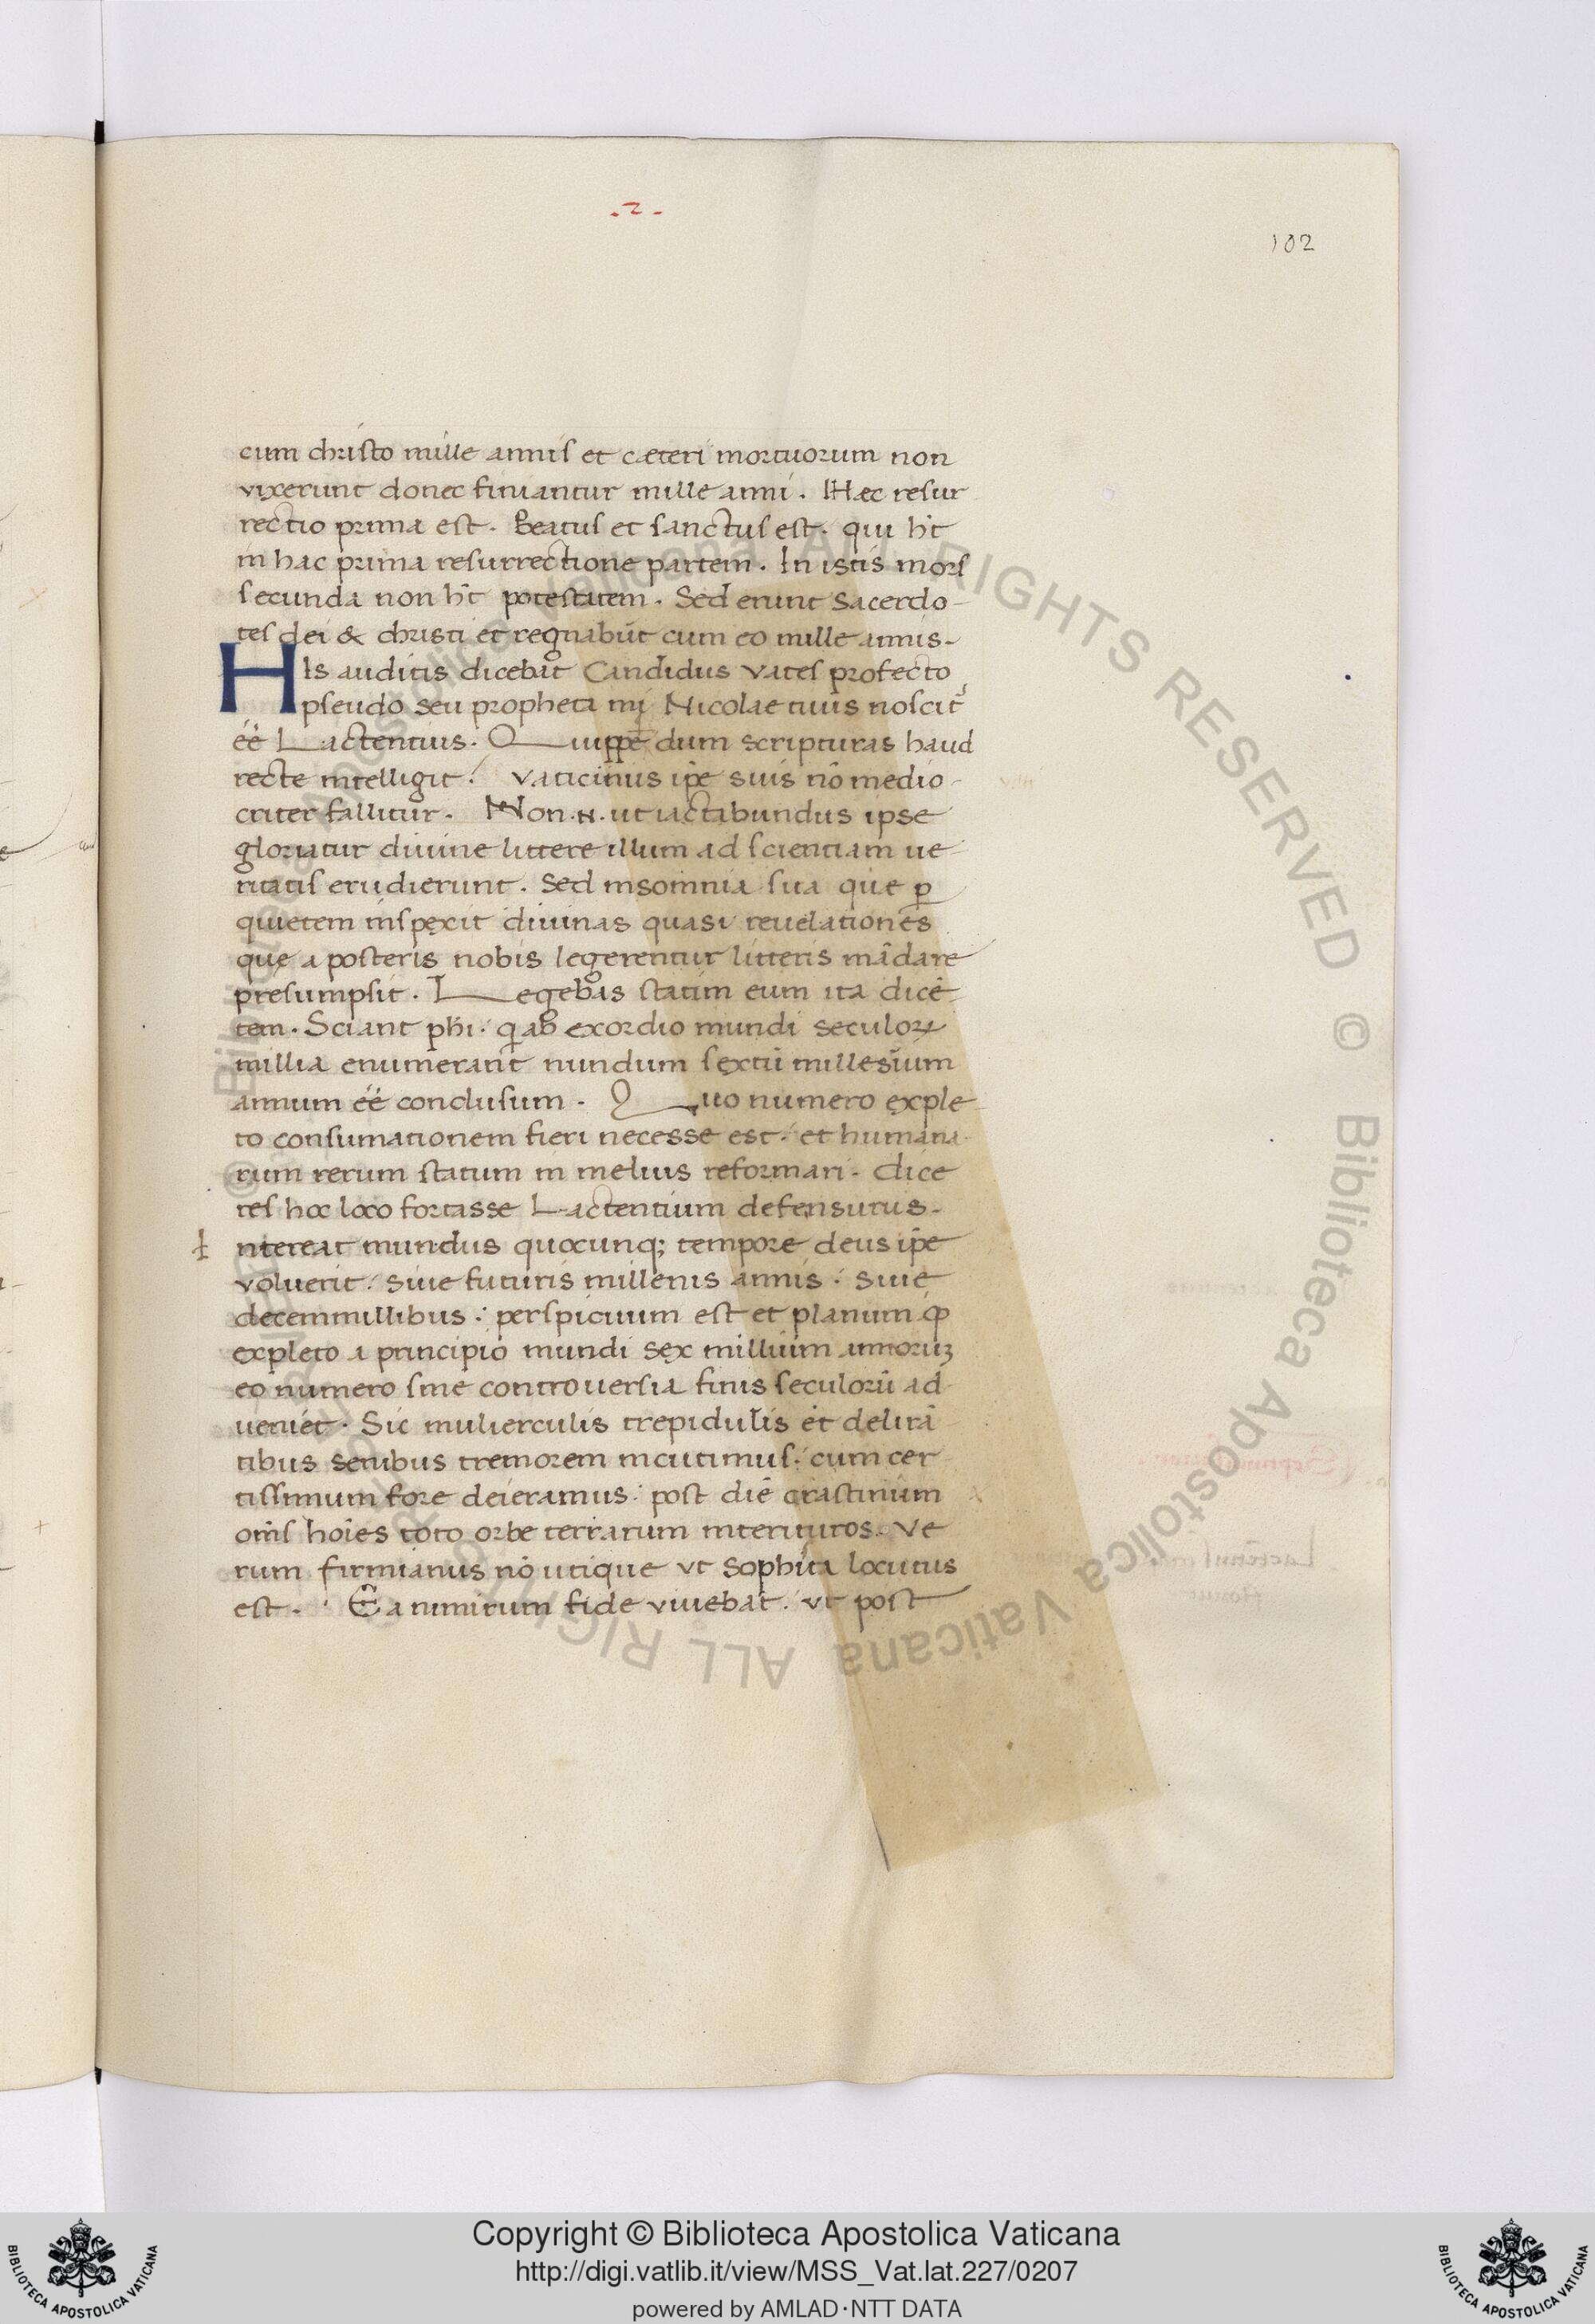 .2.
102
cum christo mille annis et cæteri mortuorum non
vixerunt donec finiantur mille anni. Haec resur
rectio prima est. Beatus et sanctus est. qui ht̄
in hac prima resurrectione partem. In istis mors
secunda non ht̄ potestatem. Sed erunt sacerdo-
tes dei & christi et regnabūt cum eo mille annis.
His auditis dicebat Candidus vates profecto
pseudo seu propheta mi Nicolae tuus noscit᷑
eē Lactentius. Quippe dum scripturas haud
recte intelligit: vaticiniis ipe suis nō medio-
criter fallitur. Non .n. ut iactabundus ipse
gloriatur diuine littere illum ad scientiam ue
ritatis erudierunt. Sed insomnia sua que ꝑ
quietem inspexit diuinas quasi reuelationes
quę a posteris nobis legerentur litteris mādare
presumpsit. Legebas statim eum ita dicē
tem. Sciant phi. ꝙ ab exordio mundi seculoꝝ
millia enumerant nundum sextū millesium
annum eē conclusum. Quo numero exple
to consumationem fieri necesse est: et humana
rum rerum statum in melius reformari. Dice
res hoc loco fortasse Lactentium defensurus.
I ntereat mundus quocunq; tempore deus ipe
voluerit: siue futuris millenis annis: siue
decemmillibus: perspicuum est et planum ꝙ
expleto a principio mundi sex millium annoruꝫ
eo numero sine controuersia finis seculorū ad
ueniet. Sic mulierculis trepidulis et delirā
tibus senibus tremorem incutimus: cum cer
tissimum fore deieramus: post diē crastinum
oms hoies toto orbe terrarum interituros. Ve
rum firmianus nō utique vt sophista locutus
est. Ea nimirum fide viuebat: vt post
© Biblioteca Apostolica Vaticana ALL RIGHTS RESERVED
© Biblioteca Apostolica Vaticana ALL RIGHTS RESERVED
Copyright © Biblioteca Apostolica Vaticana
http://digi.vatlib.it/view/MSS_Vat.lat.227/0207
powered by AMLAD·NTT DATA
BIBLIOTECA APOSTOLICA VATICANA
BIBLIOTECA APOSTOLICA VATICANA